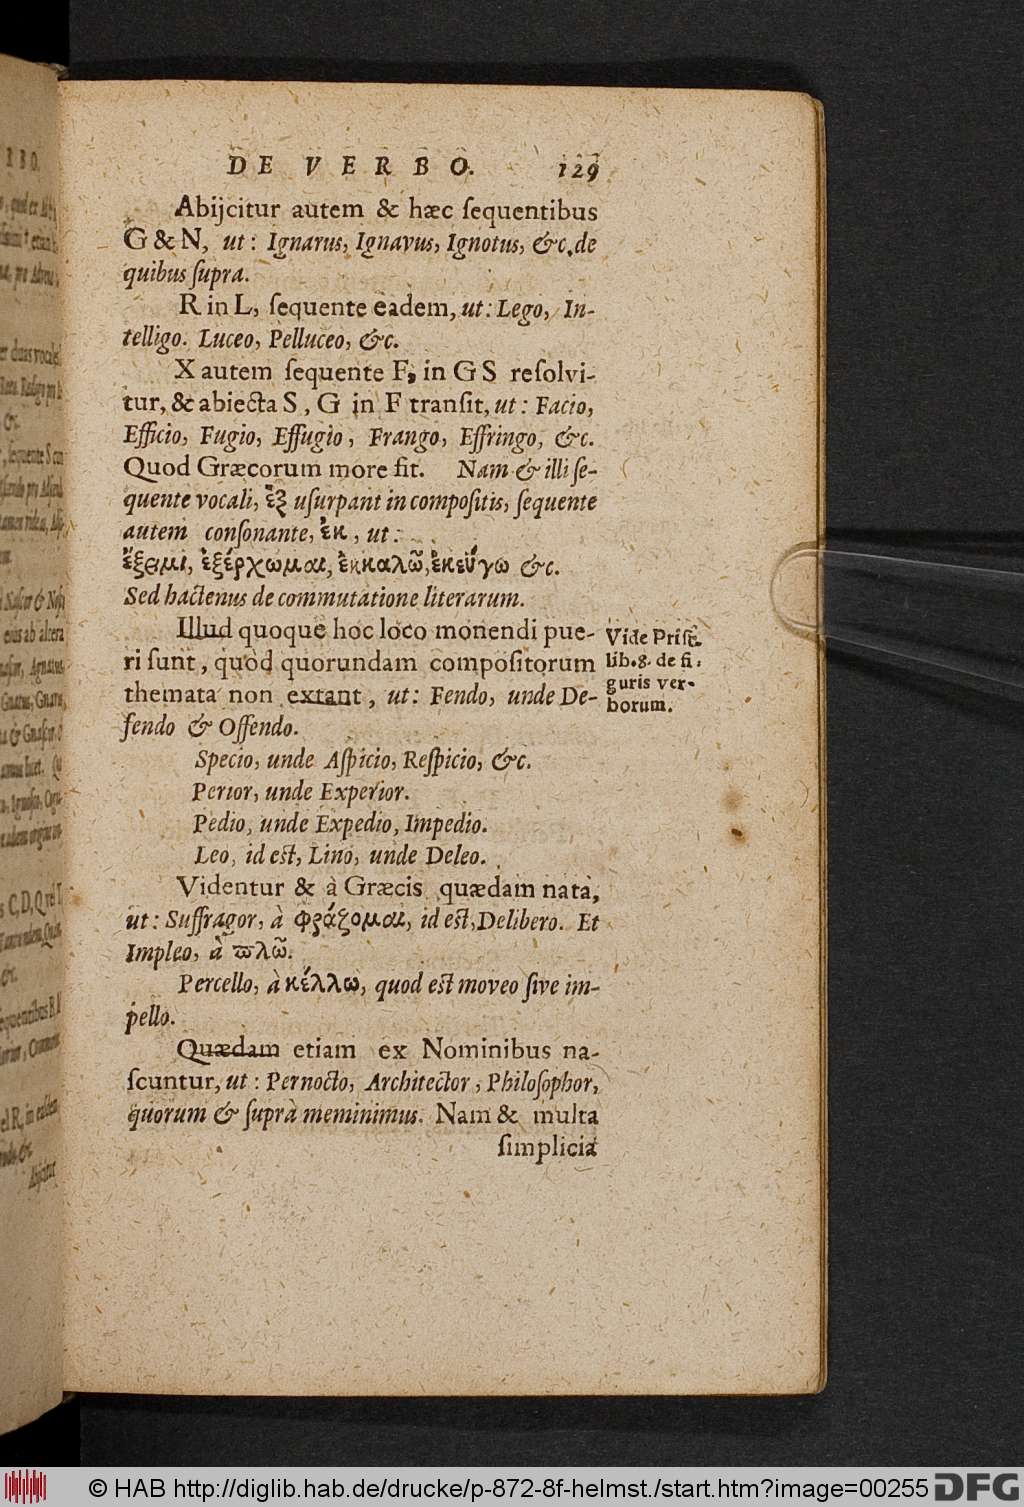 DE VERBO. 129
Abijcitur autem & hæc ſequentibus
G & N, ut: Ignarus, Ignavus, Ignotus, &c. de
quibus ſupra.
R in L, ſequente eadem, ut: Lego, In-
telligo. Luceo, Pelluceo, &c.
X autem ſequente F, in G S reſolvi-
tur, & abiecta S, G in F tranſit, ut: Facio,
Efficio, Fugio, Effugio, Frango, Effringo, &c.
Quod Græcorum more fit. Nam & illi ſe-
quente vocali, ἐξ uſurpant in compoſitis, ſequente
autem conſonante, ἐκ, ut:
ἔξειμι, ἐξέρχωμαι, ἐκκαλῶ, ἐκεύγω &c.
Sed hactenus de commutatione literarum.
Illud quoque hoc loco monendi pue-
ri ſunt, quòd quorundam compoſitorum
themata non extant, ut: Fendo, unde De-
fendo & Offendo.
Vide Priſc.
lib. 8. de fi-
guris ver-
borum.
Specio, unde Aſpicio, Reſpicio, &c.
Perior, unde Experior.
Pedio, unde Expedio, Impedio.
Leo, id est, Lino, unde Deleo.
Videntur & à Græcis quædam nata,
ut: Suffragor, à φράζομαι, id est, Delibero. Et
Impleo, à ϖλῶ.
Percello, à κέλλω, quod est moveo ſive im-
pello.
Quædam etiam ex Nominibus na-
ſcuntur, ut: Pernocto, Architector, Philoſophor,
quorum & ſuprà meminimus. Nam & multa
ſimplicia
© HAB http://diglib.hab.de/drucke/p-872-8f-helmst./start.htm?image=00255 DFG